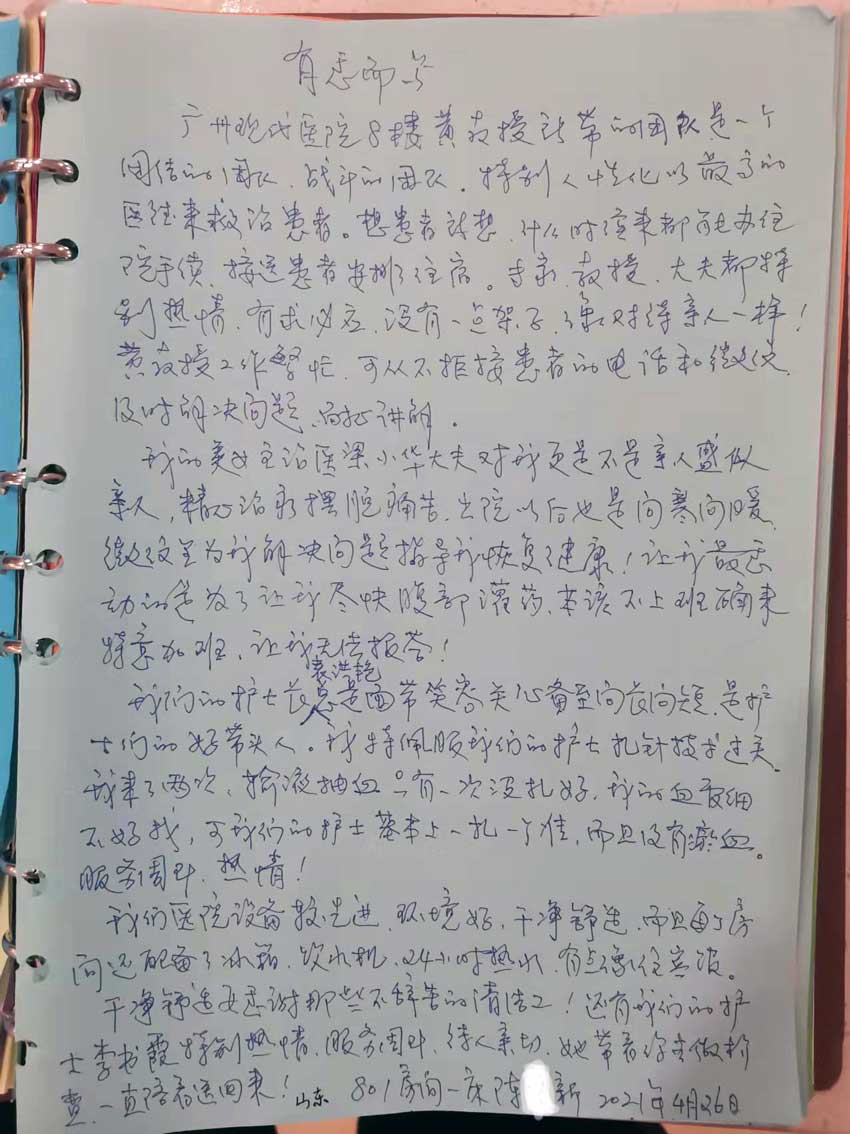 有感而写
广州现代医院8楼黄教授所带的团队是一个
团结的团队、战斗的团队。特别人性化以最高的
医德来救治患者。想患者所想,什么时候来都能办住
院手续,接送患者安排了住宿。专家、教授、大夫都特
别热情,有求必应,没有一点架子,像对待亲人一样!
黄教授工作繁忙,可从不拒接患者的电话和微信,
及时解决问题、讲解。
我的美女主治医梁小华大夫对我更是不是亲人盛似
亲人,精心治疗摆脱痛苦,出院以后也是问寒问暖,
微信里为我解决问题指导我恢复健康!让我最感
动的是为了让我尽快腹部灌药,本该不上班确来
特意加班,让我无法报答!
我们的护士长总是面带笑容关心备至问长问短,是护
士们的好带头人。我特佩服我们的护士扎针技术过关,
我来了两次,输液抽血只有一次没扎好,我的血管细
不好找,可我们的护士基本上一扎一个准,而且没有瘀血。
服务周到、热情!
我们医院设备较先进,环境好,干净舒适,而且每个房
间还配备了冰箱、饮水机、24小时热水,有点像住宾馆。
干净舒适要感谢那些不辞苦的清洁工!还有我们的护
士李书霞特别热情、服务周到、待人亲切,她带着你去做检
查,一直陪着送回来!山东 801房间一床陈 新 2021年4月26日